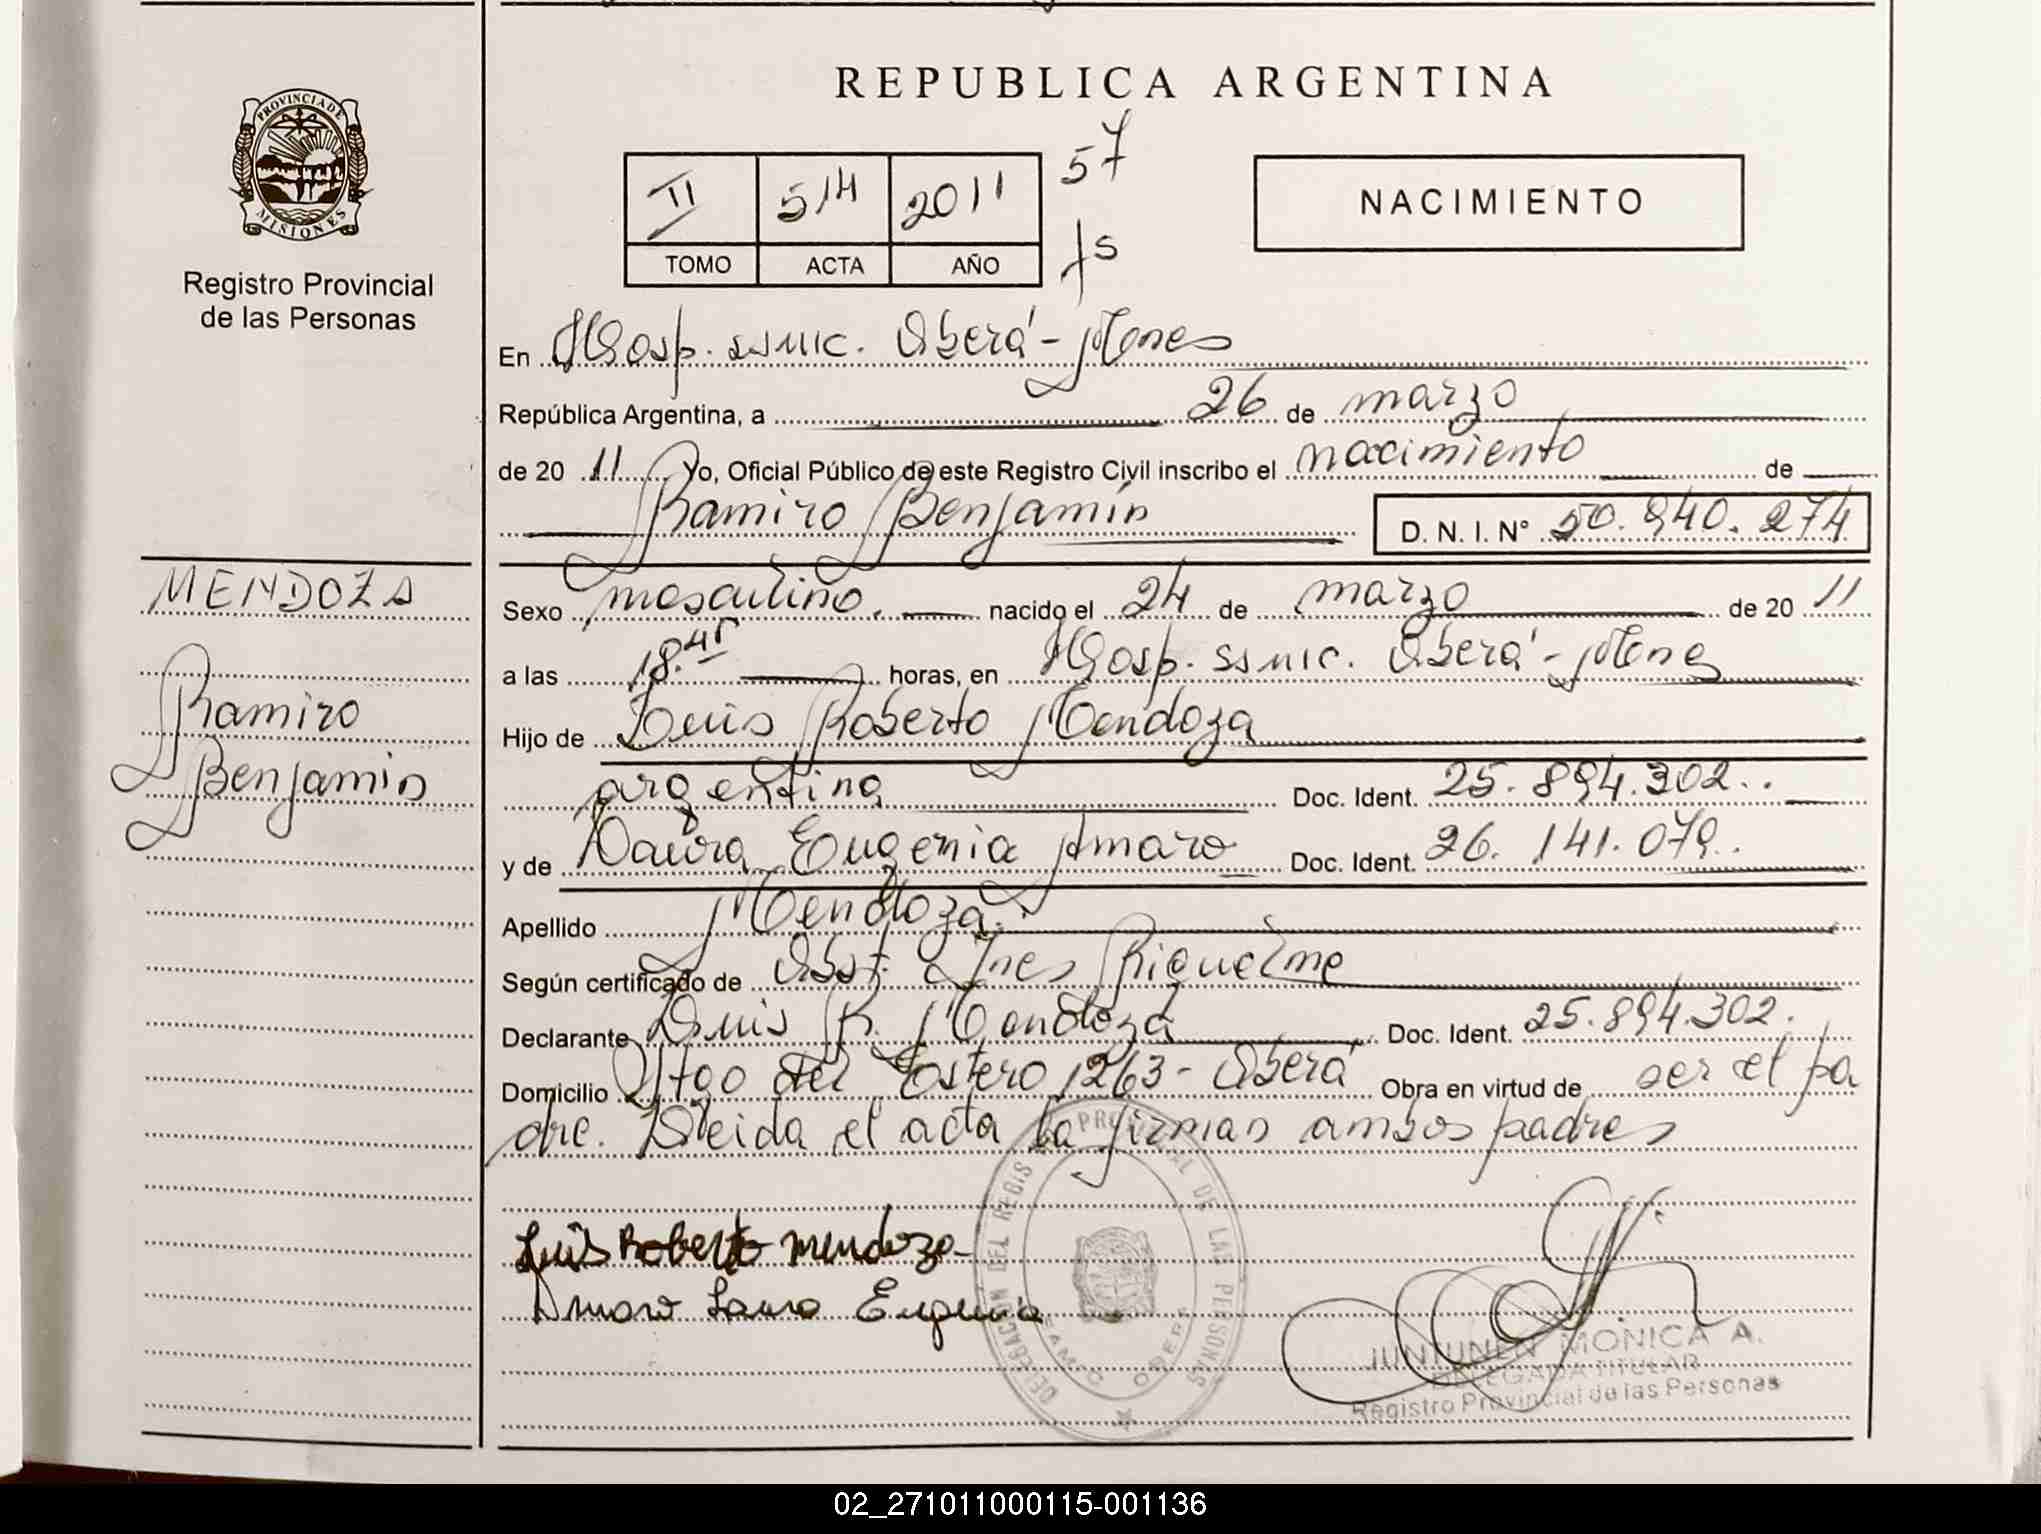 REPUBLICA ARGENTINA
PROVINCIA DE
MISIONES
Registro Provincial
de las Personas
II 514 2011 57
TOMO ACTA AÑO
NACIMIENTO
En Hosp. ssmic. Oberá - Mnes
República Argentina, a 26 de marzo
de 20 11 Yo, Oficial Público de este Registro Civil inscribo el nacimiento de
Ramiro Benjamín D. N. I. Nº 50.940.274
MENDOZA
Ramiro
Benjamin
Sexo masculino. nacido el 24 de marzo de 20 11
a las 18.45 horas, en Hosp. ssmic. Oberá - Mnes
Hijo de Luis Roberto Mendoza
argentina Doc. Ident. 25.894.302..
y de Laura Eugenia Amaro Doc. Ident. 26.141.079..
Apellido Mendoza.
Según certificado de Obst. Ines Riquelme
Declarante Luis R. Mendoza Doc. Ident. 25.894.302.
Domicilio Stgo del Estero 1263 - Oberá Obra en virtud de ser el pa
dre. Leida el acta la firman ambos padres
Luis Roberto Mendoza
Amaro Laura Eugenia
JUNTUNEN MONICA A.
DELEGADA TITULAR
Registro Provincial de las Personas
02_271011000115-001136